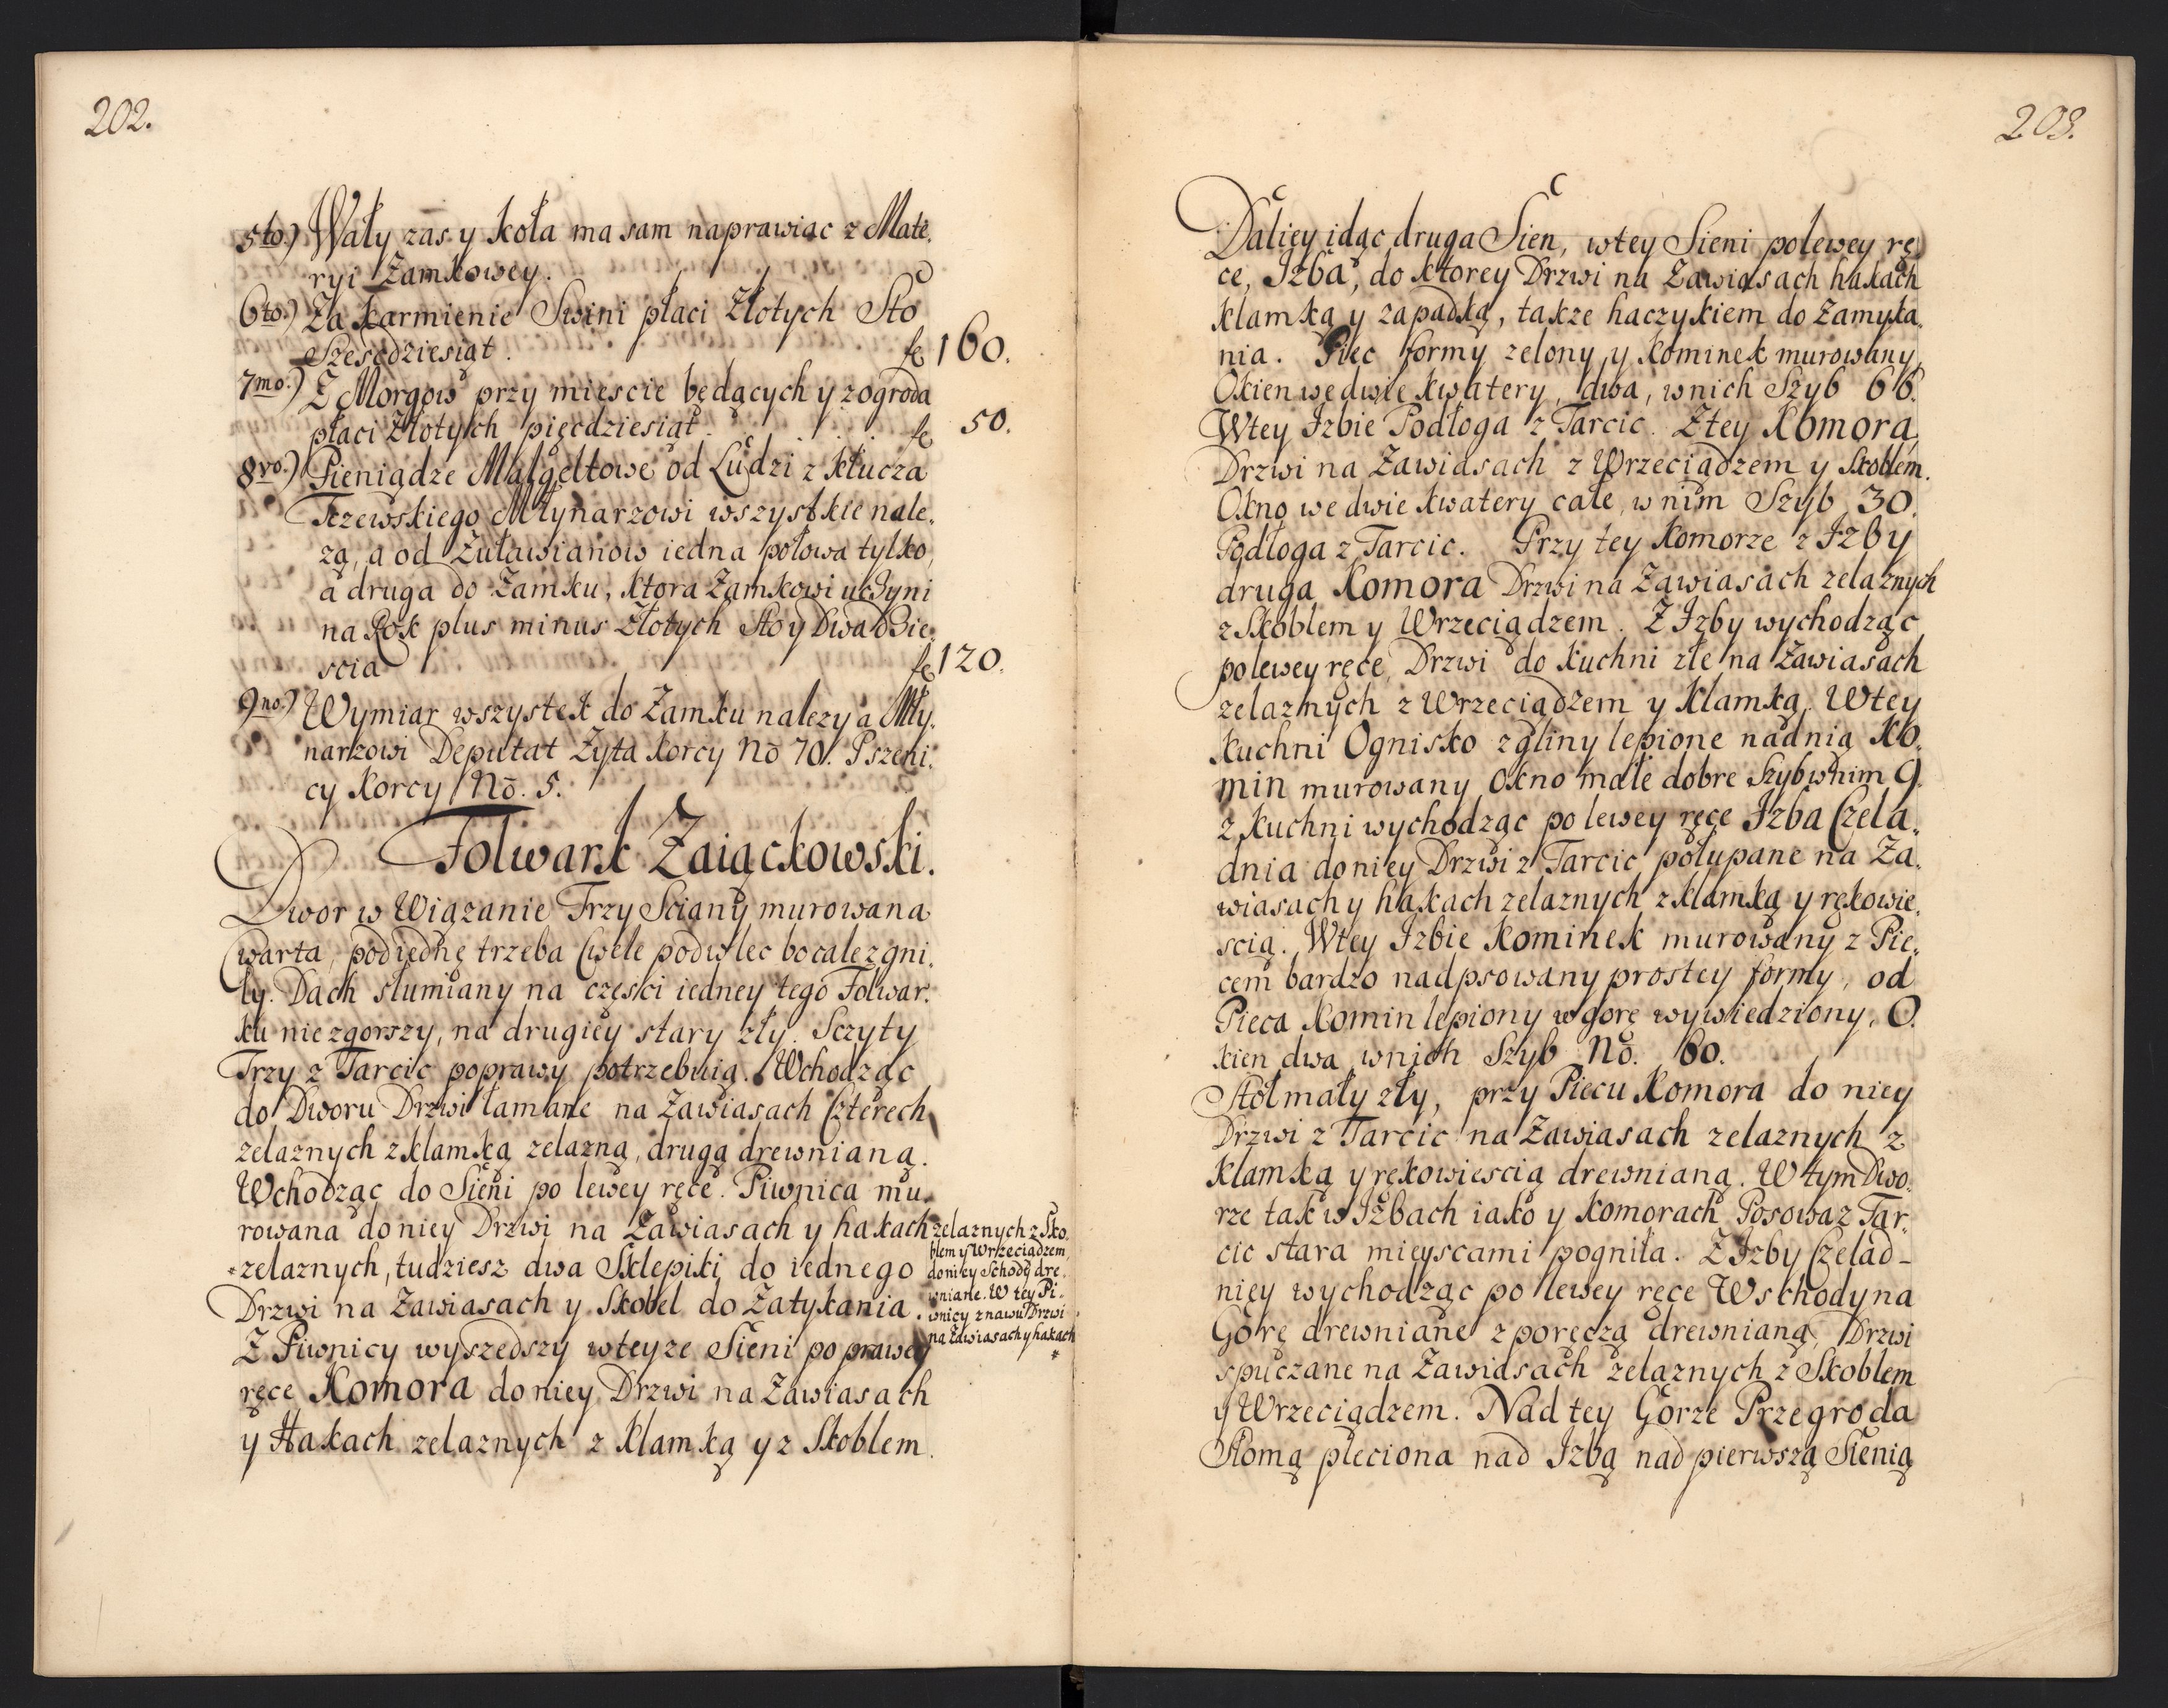 202.
5to.) Wały zas y koła ma sam naprawiac z Mate,
ryi Zamkowey.
6to.) Za karmienie Swini płaci Złotych Sto
Szescdziesiąt. fl 160.
7mo.) Z Morgow przy miescie będących y zogroda
płaci Złotych pięcdziesiąt. . . . . fl 50.
8vo.) Pieniądze Malgeltowe od Ludzi z klucza
Tczewskiego Młynarzowi wszystkie nale,
zą, a od Zuławianow iedna połowa tylko,
a druga do Zamku, ktora Zamkowi uczyni
na Rok plus minus Złotych Sto y Dwadzie,
scia fl 120.
9no.) Wymiar wszystek do Zamku nalezy a Mły,
narzowi Deputat Zyta korcy No 70. Pszeni,
cy Korcy No. 5.
Folwark Zaiąckowski.
Dwor w Wiązanie Trzy Sciany murowana
Cwarta, pod iednę trzeba Cwele podwlec bo cale zgni,
ły. Dach słumiany na częsci iedney tego Folwar,
ku niezgorszy, na drugiey stary zły. Sczyty
Trzy z Tarcic poprawy potrzebuią. Wchodząc
do Dworu Drzwi łamane na Zawiasach Czterech
zelaznych z klamką zelazną, drugą drewnianą.
Wchodząc do Sieni po lewey ręce. Piwnica mu,
rowana do niey Drzwi na Zawiasach y hakach zelaznych z Sko,
blem y Wrzeciądzem
do niey Schody dre,
wniane. W tey Pi,
wnicy znawu Drzwi
na Zawiasach y hakach
*
*zelaznych, tudziesz dwa Sklepiki do iednego
Drzwi na Zawiasach y Skobel do Zatykania.
Z Piwnicy wyszedszy wteyze Sieni po prawey
ręce Komora do niey Drzwi na Zawiasach
y Hakach zelaznych z Klamką y z Skoblem.
203.
Daliey idąc druga Sien, wtey Sieni po lewey rę,
ce, Izba, do ktorey Drzwi na Zawiasach hakach
klamką y zapadką, takze haczykiem do Zamyka,
nia. Piec formy zelony y Kominek murowany,
Okien we dwie kwatery, dwa, wnich Szyb 66.
Wtey Izbie Podłoga z Tarcic. Ztey Komora,
Drzwi na Zawiasach z Wrzeciądzem y Skoblem.
Okno we dwie kwatery całe, w nim Szyb 30.
Podłoga z Tarcic. Przy tey Komorze z Izby
druga Komora Drzwi na Zawiasach zelaznych
z Skoblem y Wrzeciądzem. Z Izby wychodząc
po lewey ręce, Drzwi do kuchni złe na Zawiasach
zelaznych z Wrzeciądzem y Klamką. Wtey
Kuchni Ognisko z gliny lepione nadnią Ko,
min murowany, Okno małe dobre Szyb wnim 9.
z Kuchni wychodząc po lewey ręce Izba Czela,
dnia do niey Drzwi z Tarcic połupane na Za,
wiasach y hakach zelaznych z klamką y rękowie,
scią. Wtey Izbie Kominek murowany z Pie,
cem bardzo nadpsowany prostey formy, od
Pieca Komin lepiony w gorę wywiedziony, O,
kien dwa, wnich Szyb No. 60.
Stol mały zły, przy Piecu Komora do niey
Drzwi z Tarcic na Zawiasach zelaznych z
klamką y rękowiescią drewnianą. W tym Dwo,
rze tak w Izbach iako y Komorach Posowa z Tar,
cic stara mieyscami pogniła. Z Izby Czelad-
niey wychodząc po lewey ręce Wschody na
Gorę drewniane z poręczą drewnianą, Drzwi
spuczane na Zawiasach zelaznych z Skoblem
y Wrzeciądzem. Nad tey Gorze Przegroda
Słomą pleciona nad Izbą nad pierwszą Sienią